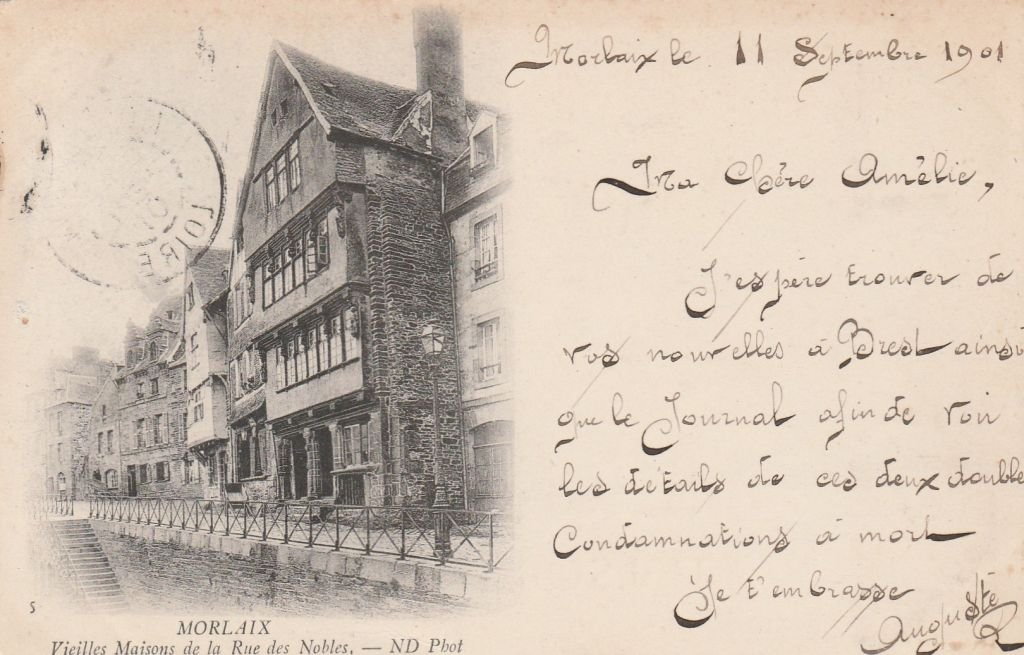 Morlaix le 11 Septembre 1901
Ma Chère Amélie,
J'espère trouver de
vos nouvelles à Brest ainsi
que le Journal afin de voir
les détails de ces deux double
Condamnations à mort
Je t'embrasse
Auguste
LOIRE
5
MORLAIX
Vieilles Maisons de la Rue des Nobles. — ND Phot